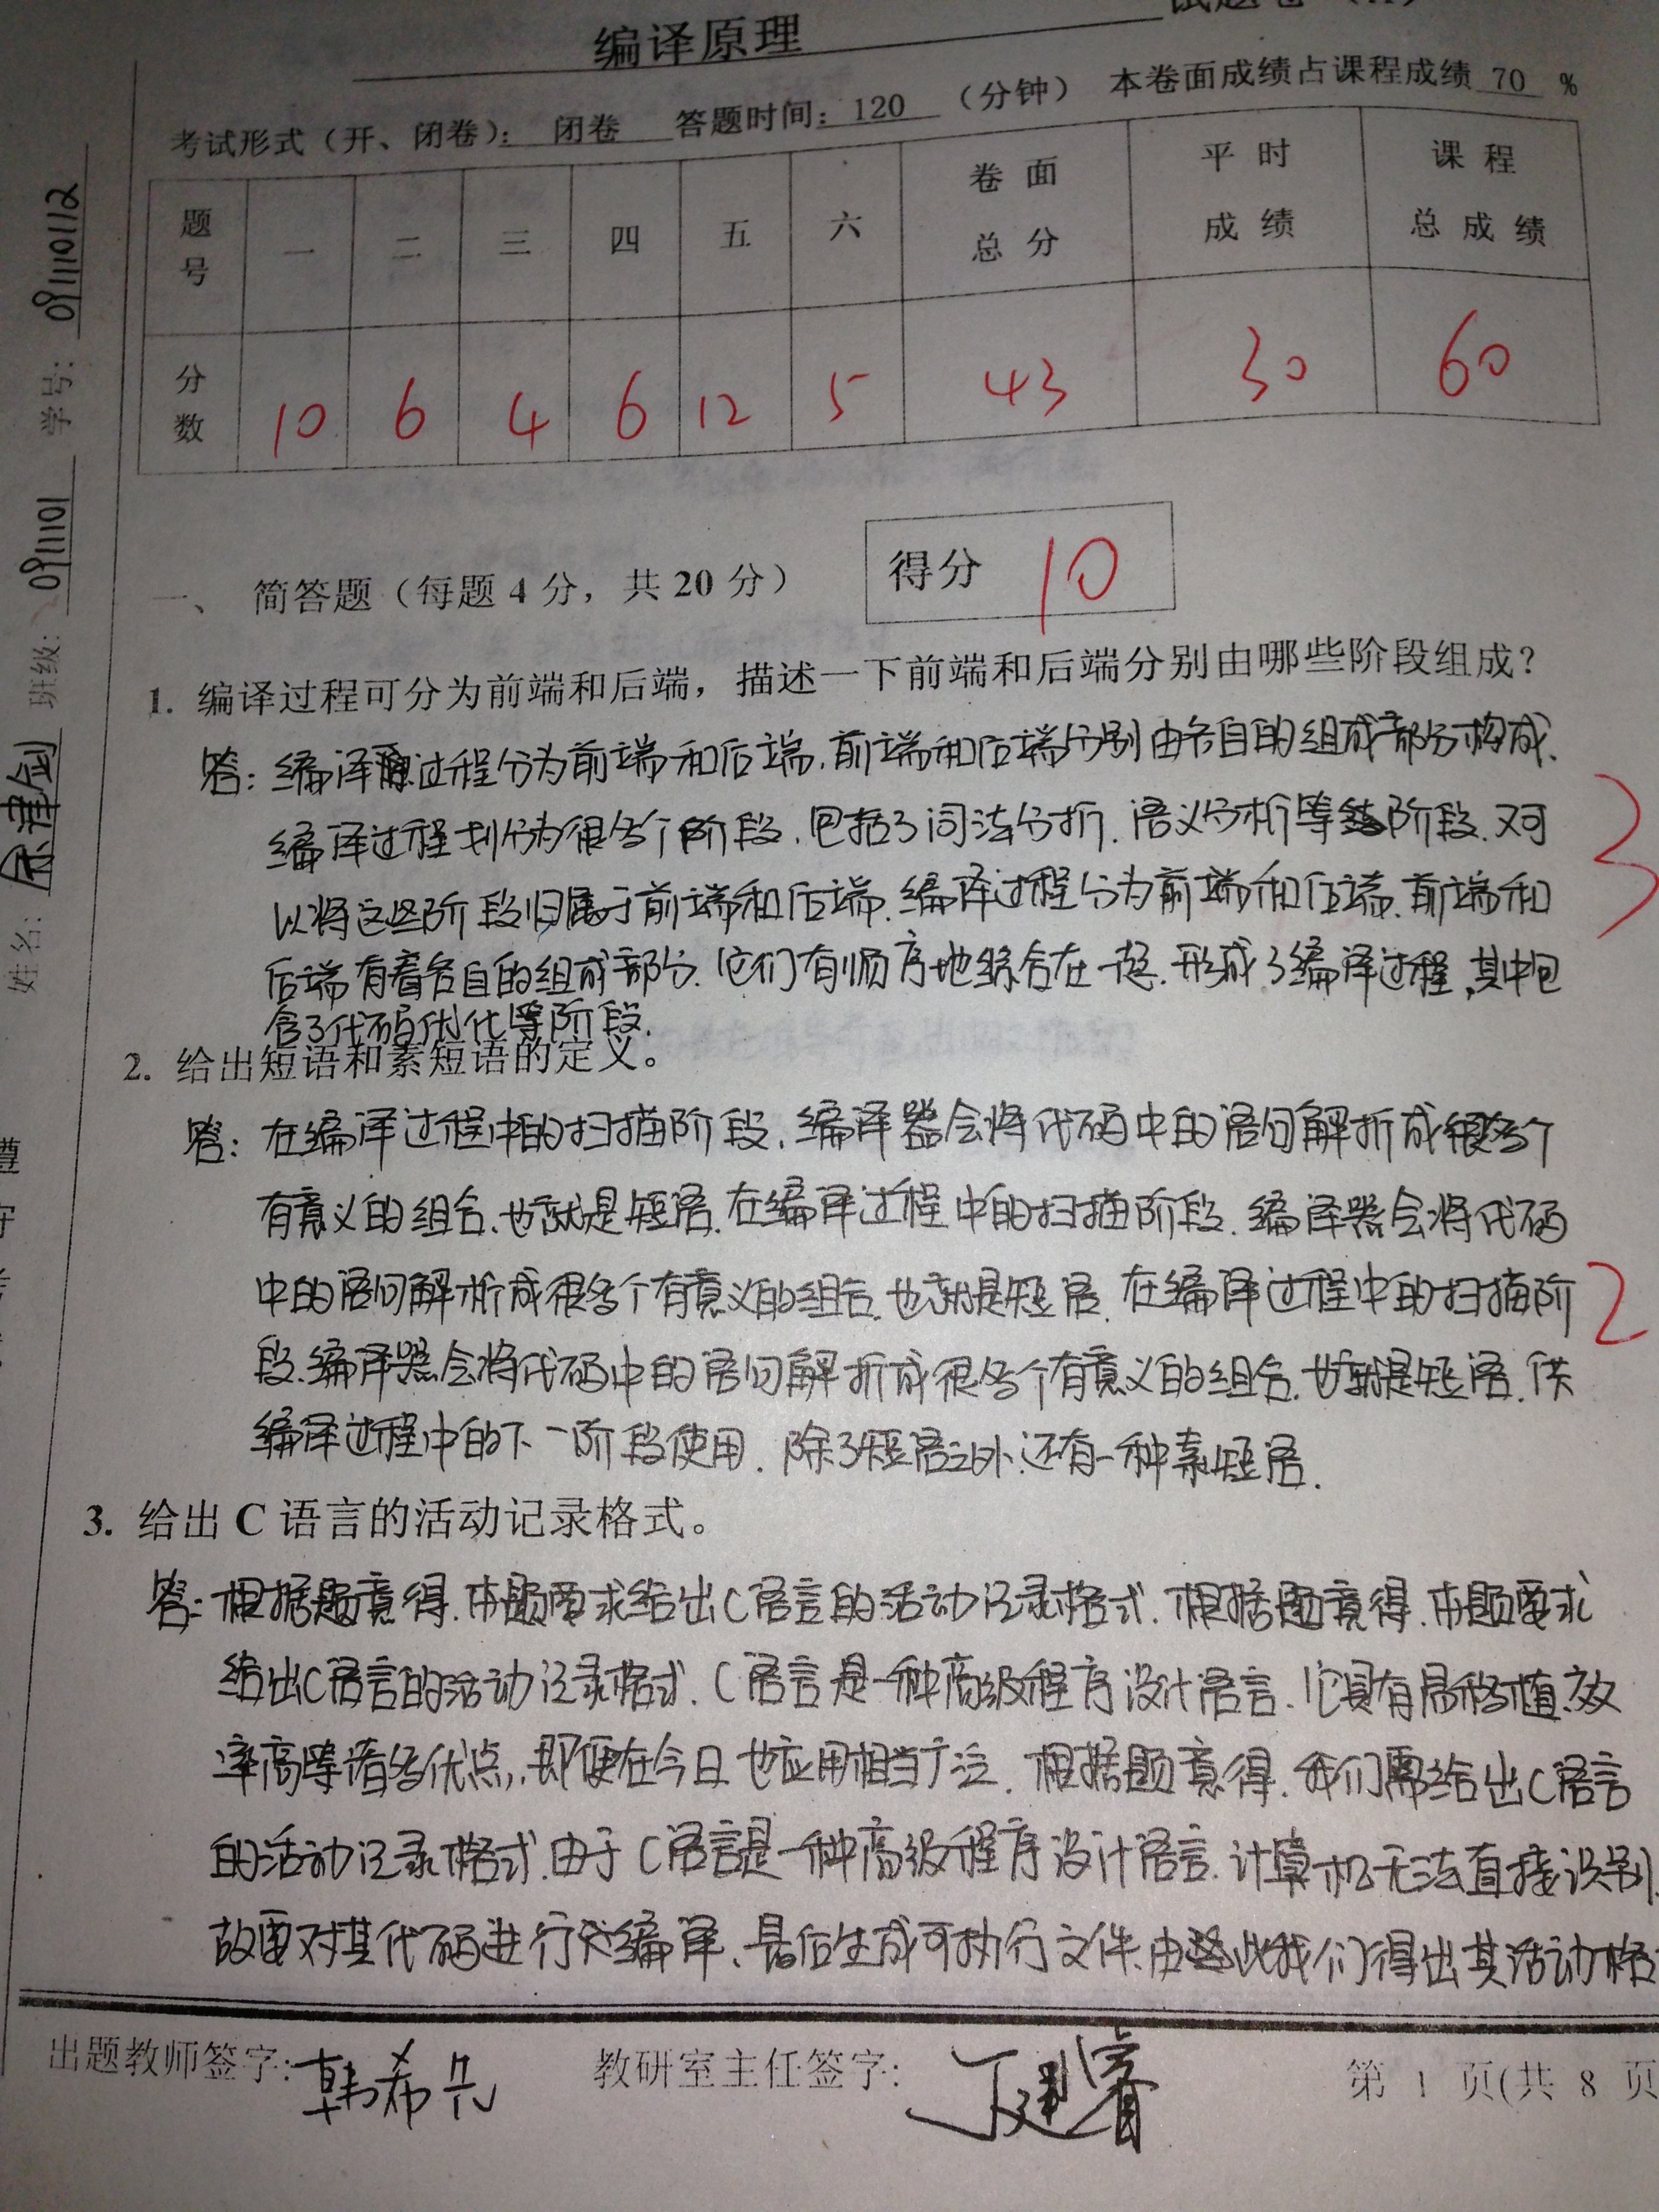 编译原理
考试形式（开、闭卷）：闭卷 答题时间：120（分钟） 本卷面成绩占课程成绩 70 %
题号 一 二 三 四 五 六 卷面总分 平时成绩 课程总成绩
分数 10 6 4 6 12 5 43 30 60
学号：0911110112
班级：0911101
姓名：
一、 简答题（每题 4 分，共 20 分）
得分 10
1. 编译过程可分为前端和后端，描述一下前端和后端分别由哪些阶段组成？
答：编译过程分为前端和后端.前端和后端分别由各自的组成部分构成.
编译过程划分为很多个阶段.包括了词法分折.语义分析等阶段.又可
以将这些阶段归属于前端和后端.编译过程分为前端和后端.前端和
后端有着各自的组成部分.它们有顺序地综合在一起.形成了编译过程,其中包
含了代码优化等阶段.
3
2. 给出短语和素短语的定义。
答：在编译过程中的扫描阶段.编译器会将代码中的语句解折成很多个
有意义的组合.也就是短语.在编译过程中的扫描阶段.编译器会将代码
中的语句解析成很多个有意义的组合.也就是短语.在编译过程中的扫描阶
段.编译器会将代码中的语句解折成很多个有意义的组合.也就是短语.供
编译过程中的下一阶段使用.除了短语之外.还有一种素短语.
2
3. 给出 C 语言的活动记录格式。
答：根据题意得.本题要求给出C语言的活动记录格式.根据题意得.本题要求
给出C语言的活动记录格式.C语言是一种高级程序设计语言.它具有易移植.效
率高等诸多优点,即便在今日也应用相当广泛.根据题意得.我们需给出C语言
的活动记录格式.由于C语言是一种高级程序设计语言.计算机无法直接识别.
故要对其代码进行编译.最后生成可执行文件.由此我们得出其活动格
出题教师签字：韩希先
教研室主任签字：丁建睿
第 1 页(共 8 页